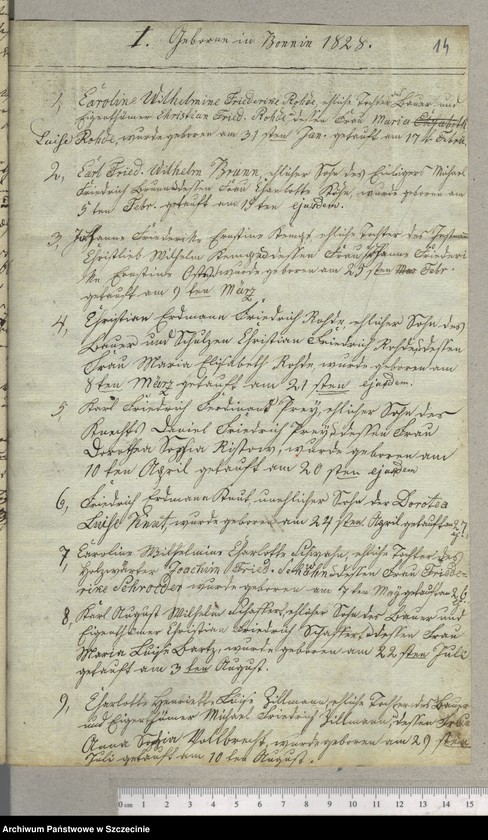 I. Geborne in Bonnin 1828.
14
1, Caroline Wilhelmine Friederine Rohde, ehliche Tochter des Bauer und
Eigenthümer Christian Fried. Rohde dessen Frau Maria Elisabeth
Luise Rohde, wurde geboren am 31 sten Jan. getauft am 17 t. Febr.
2, Carl Fried. Wilhelm Brunn, ehlicher Sohn des Michael
Friedrich Brunn dessen Frau Charlotte wurde geboren am
5 ten Febr. getauft am ten ejusdem.
3, Johanne Friederike Ernstine ehliche Tochter des
Christlieb Wilhelm dessen Frau Johanne Friederi
ke Ernstine wurde geboren am 25 sten Febr.
getauft am 9 ten März
4, Christian Erdmann Friedrich Rohde, ehlicher Sohn des
Bauer und Schulzen Christian Friedrich Rohde, dessen
Frau Maria Elisabeth Rohde, wurde geboren am
8 ten März getauft am 21 sten ejusdem.
5 Karl Friedrich Ferdinand Prey, ehlicher Sohn des
Knechts Daniel Friedrich Prey, dessen Frau
Dorothea Sophia Ristow, wurde geboren am
10 ten April getauft am 20 sten ejusdem
6, Friedrich Erdmann Knut unehlicher Sohn der Dorotea
Luise Knut, wurde geboren am 24 sten April getauft am 27
7, Caroline Wilhelmine Charlotte ehliche Tochter des
Holzwärter Joachim Fried. dessen Frau Friede-
rine Schroeder wurde geboren am 7 ten May getauft am 26
8, Karl August Wilhelm ehlicher Sohn des Bauer und
Eigenthümer Christian Friedrich dessen Frau
Maria Luise Bartz, wurde geboren am 22 sten Juli
getauft am 3 ten August.
9, Charlotte Henriette Luise Zillmann, ehliche Tochter des Bauer
und Eigenthümer Michael Friedrich Zillmann, dessen Frau
Anna Sophia Vollbrecht, wurde geboren am 29 sten
Juli getauft am 10 ten August.
0 cm 1 2 3 4 5 6 7 8 9 10 11 12 13 14 15
Archiwum Państwowe w Szczecinie